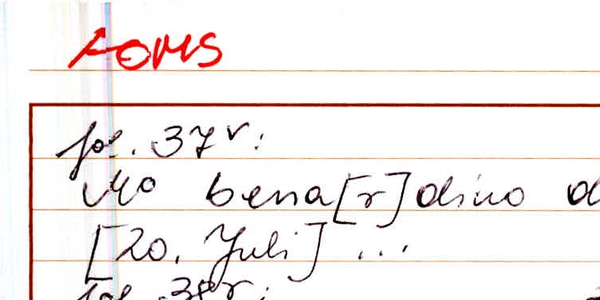 AOMS
fol. 37v:
Mo bena[r]dino d
[20. Juli] ...
fol. 38r: